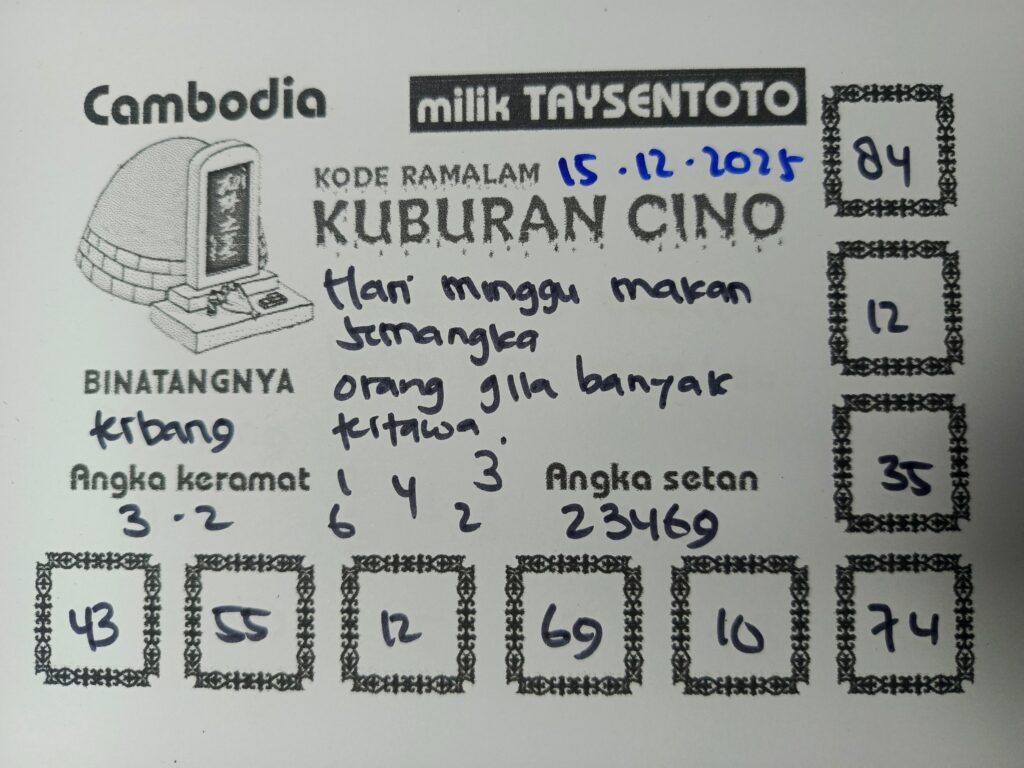 Cambodia
milik TAYSENTOTO
84
KODE RAMALAM 15.12.2025
KUBURAN CINO
12
Hari minggu makan
semangka
BINATANGNYA
orang gila banyak
kerbang
tertawa.
35
Angka keramat
1 4 3
Angka setan
3.2
6 2
23469
43 55 12 69 10 74